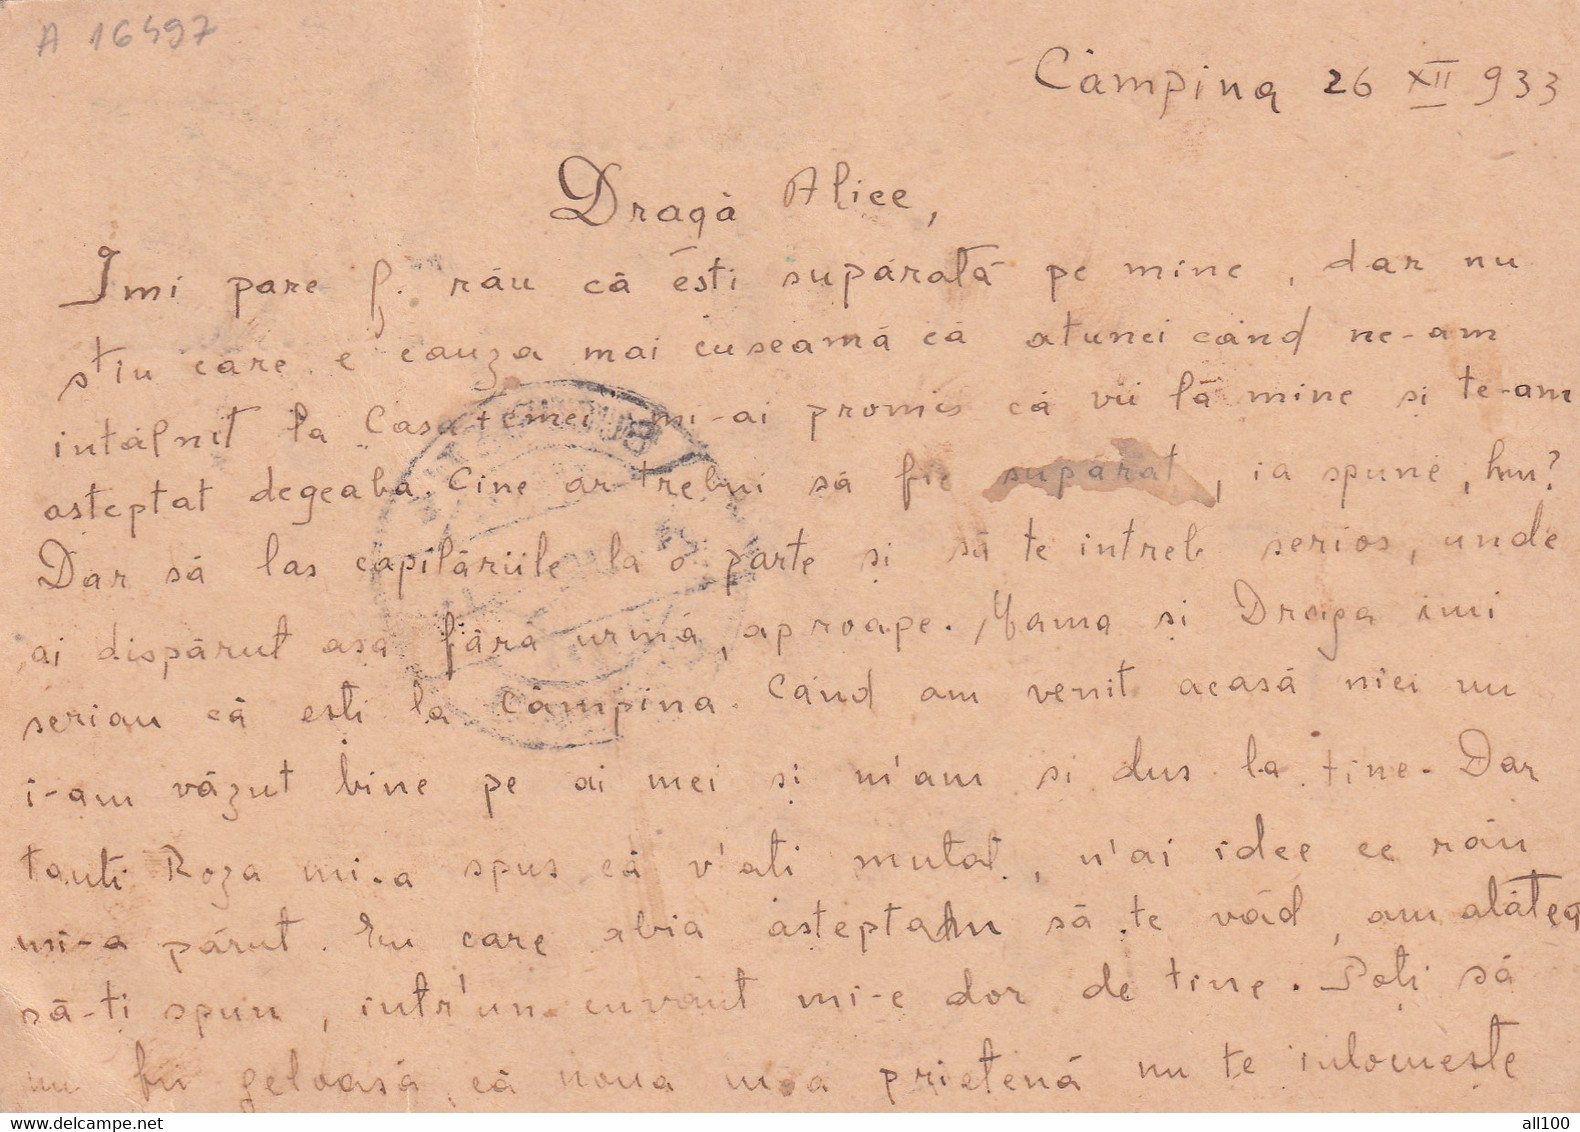 A 16497
Câmpina 26 XII 933
Dragă Alice,
Imi pare f. rău că ésti supărată pe mine, dar nu
stiu care e cauza mai cuseamă că atunci când ne-am
intâlnit la Casa temei mi-ai promis că vii la mine si te-am
asteptat degeaba. Cine ar trebui să fie supărat, ia spune, hm?
Dar să las capilăriile la o parte si să te intreb serios, unde
ai dispărut asa fără urmă, aproape. Mama si Draga imi
scriau că esti la Câmpina. Când am venit acasă nici nu
i-am văzut bine pe ai mei si m'am si dus la tine. Dar
tanti Roza mi-a spus că v'ati mutat, n'ai idee ce rău
mi-a părut. Eu care abia asteptam să te văd, am atâtea
să-ti spun, intr'un cuvânt mi-e dor de tine. Poti să
nu fii geloasă că noua mea prietenă nu te inlocueste
all100